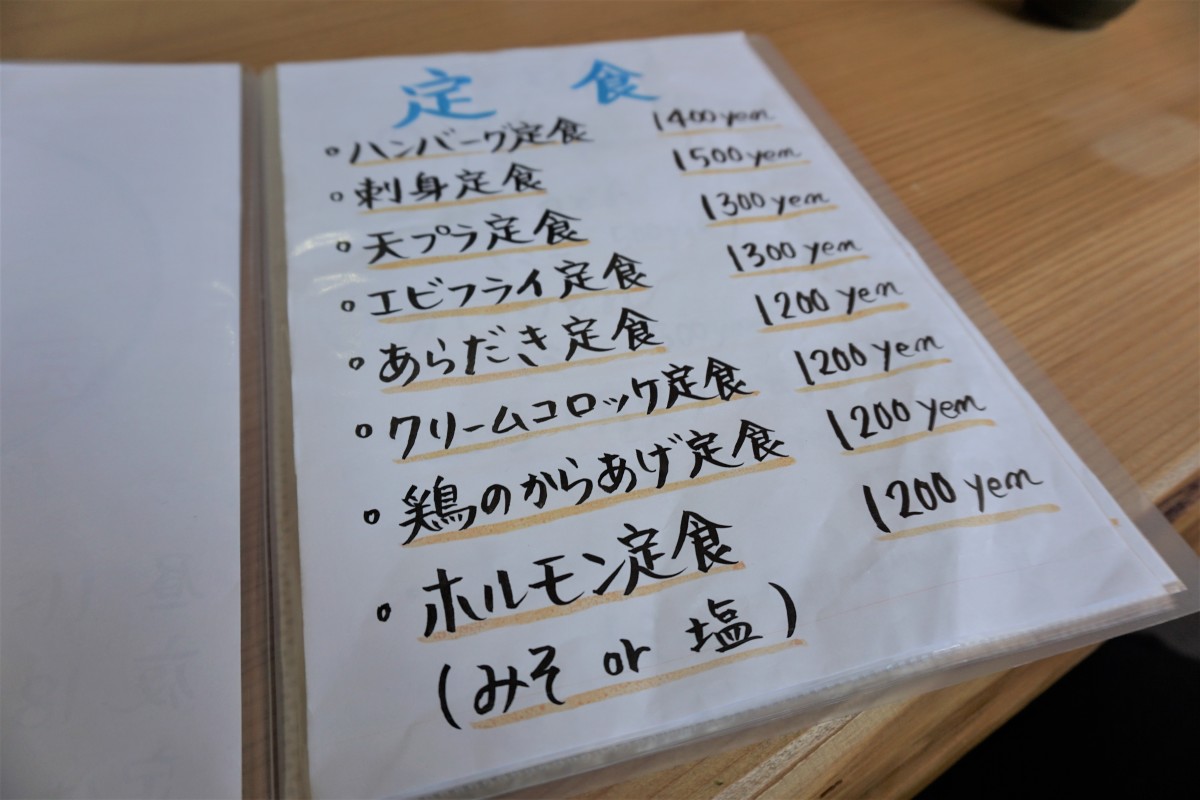 定食
。ハンバーグ定食 1400yen
。刺身定食 1500yen
。天プラ定食 1300yen
。エビフライ定食 1300yen
。あらだき定食 1200yen
。クリームコロッケ定食 1200yen
。鶏のからあげ定食 1200yen
。ホルモン定食 1200yen
(みそ or 塩)